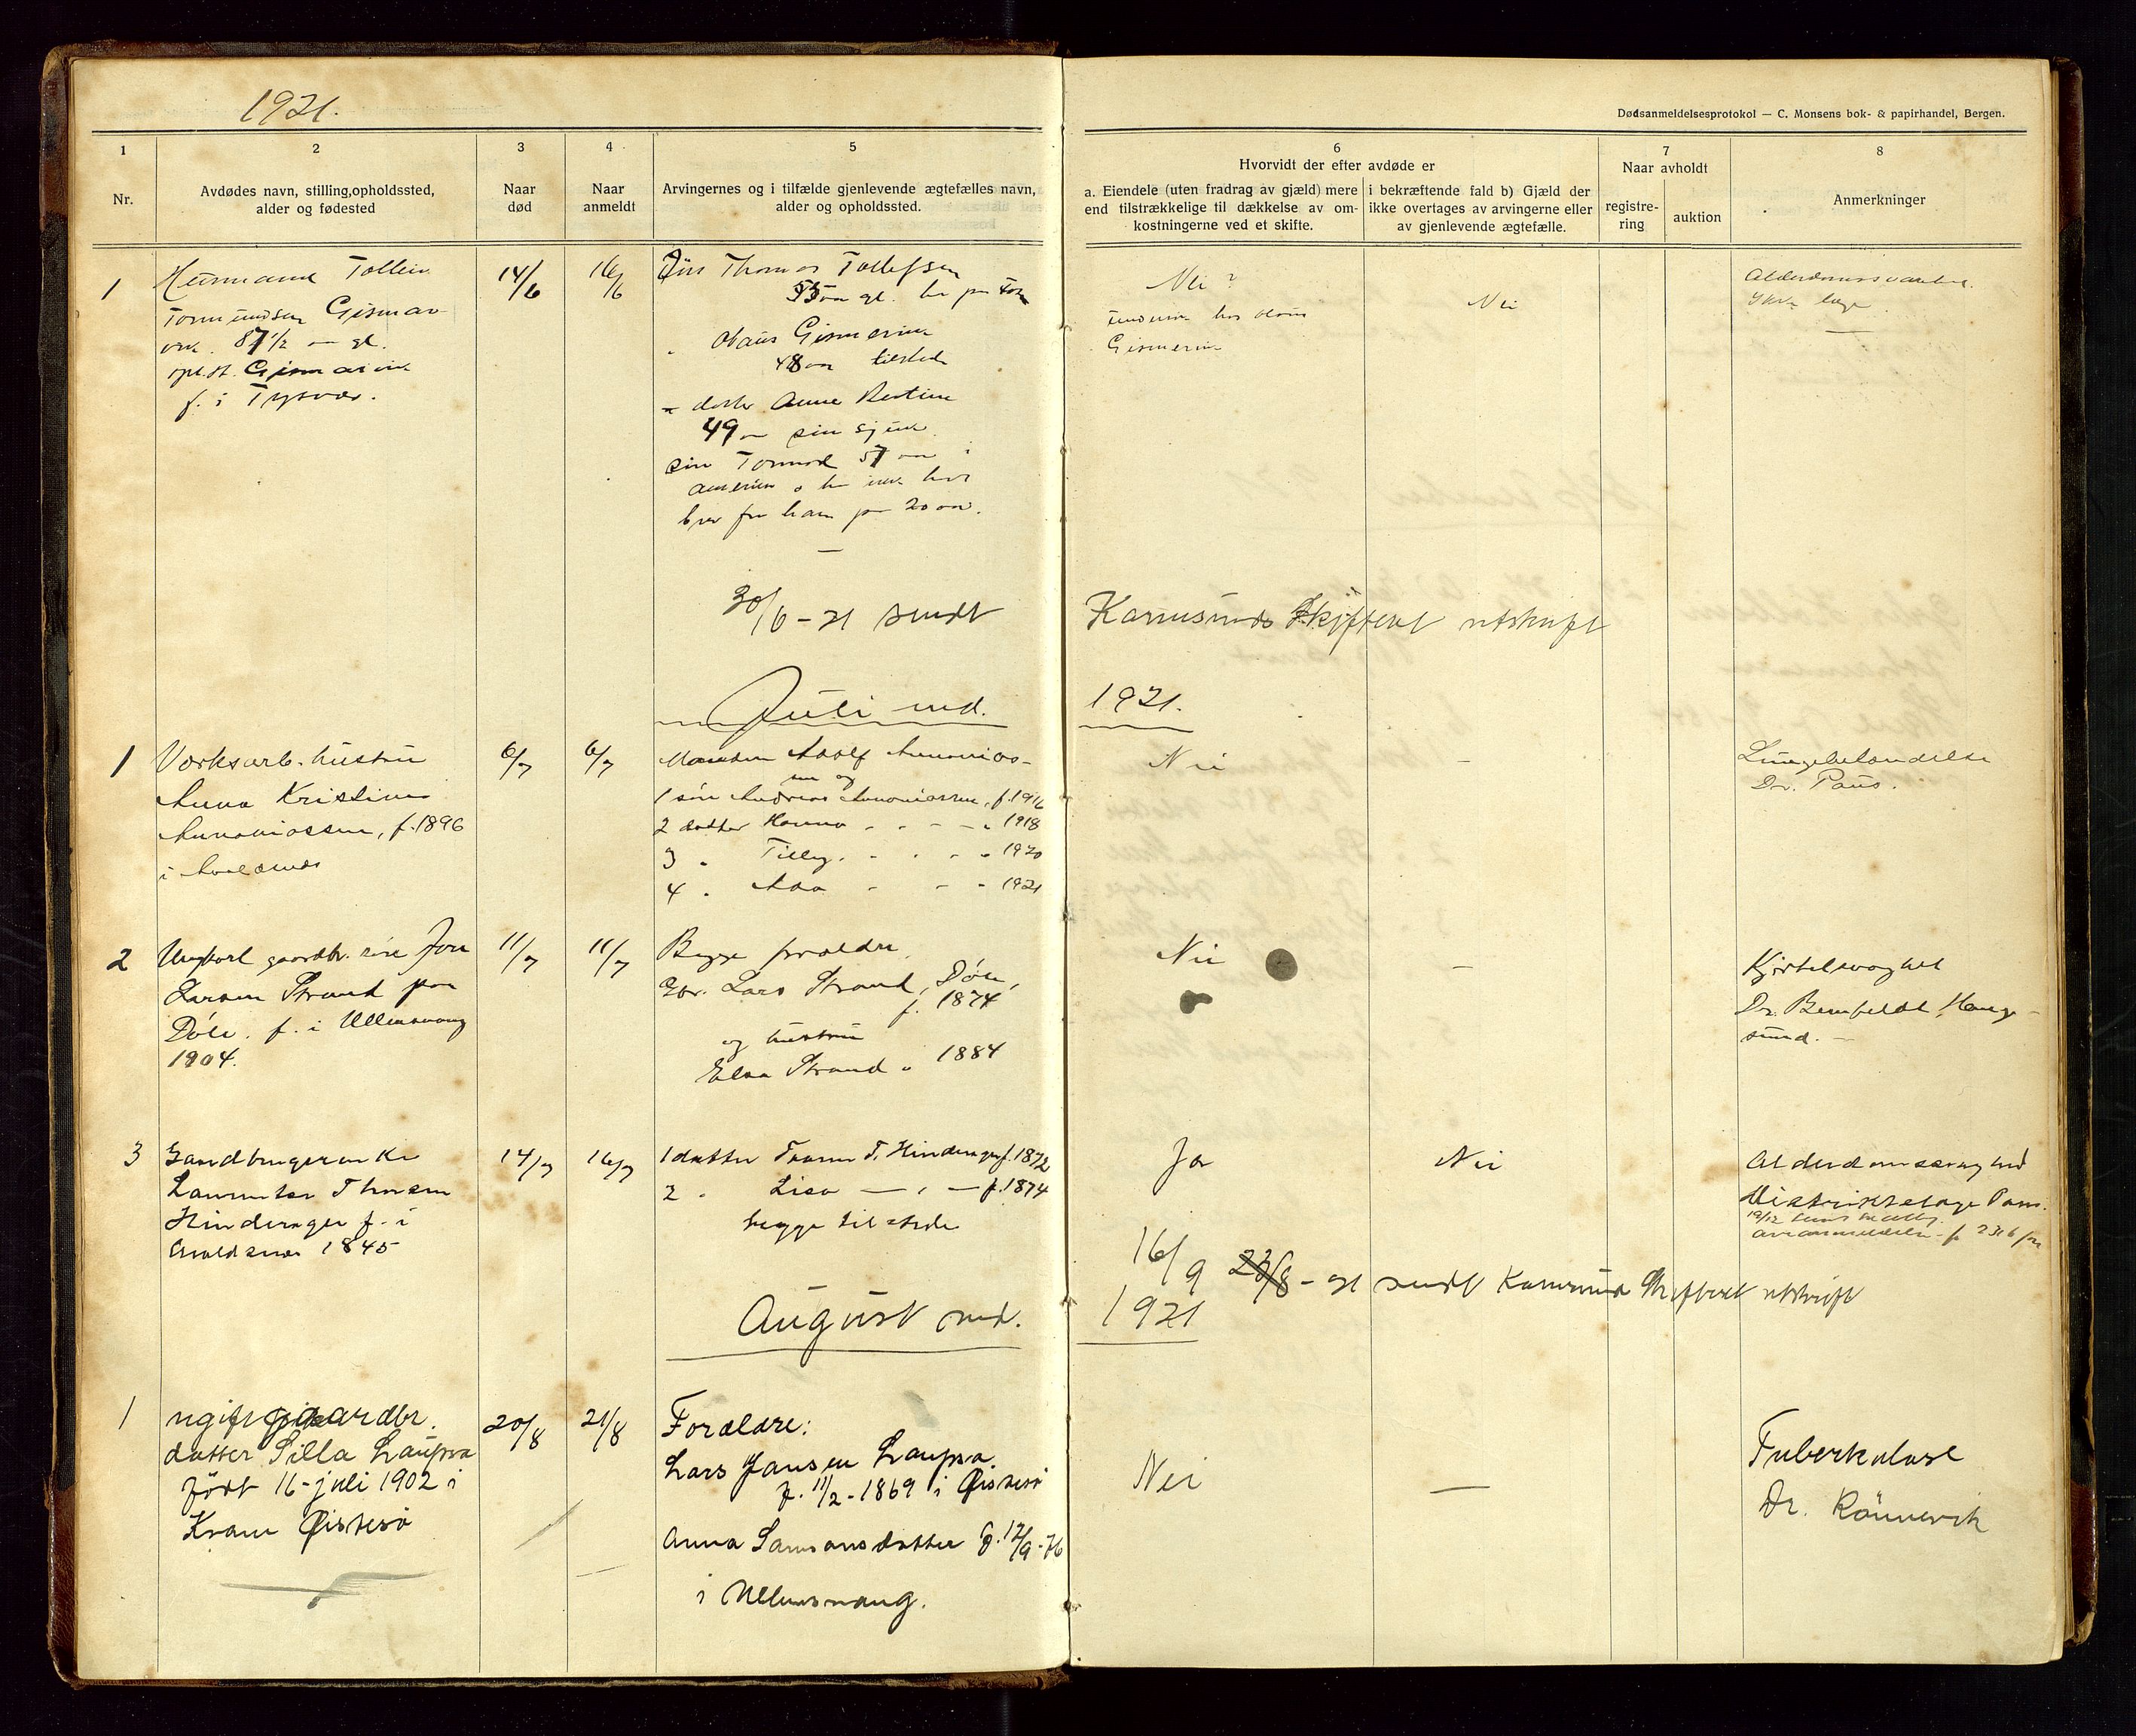 1921.
Dødsanmeldelsesprotokol — C. Monsens bok- & papirhandel, Bergen.
1
2
3
4
5
6
7
8
Nr.
Avdødes navn, stilling,opholdssted,
alder og fødested
Naar
død
Naar
anmeldt
Arvingernes og i tilfælde gjenlevende ægtefælles navn,
alder og opholdssted.
Hvorvidt der efter avdøde er
a. Eiendele (uten fradrag av gjæld) mere
end tilstrækkelige til dækkelse av om-
kostningerne ved et skifte.
i bekræftende fald b) Gjæld der
ikke overtages av arvingerne eller
av gjenlevende ægtefælle.
Naar avholdt
registre-
ring
auktion
Anmerkninger
1
Tollein
Tormundsen Gismar-
vik. 87 1/2 gl.
Gismarvik
f. i Tysvær.
14/6
16/6
Thomas Tollefsen
gl.
Gismervik
48 aar tilstede
datter Anne Bertine
49
Tormod 57 aar i
brev fra ham paa 20 aar.
Nei ?
Gismervik
Nei
30/6 - 21 sendt
Karmsunds Skifteret utskrift
Juli md.
1921.
1
Værksarb. hustru
Anna Kristine
Ananiassen, f. 1896
i Avaldsnes
6/7
6/7
Manden Adolf Ananias-
sen og
1 søn Andreas Ananiassen, f. 1916
2 datter Hanna - - - - 1918
3 " Tilly. - - - - 1920
4 " Ada - - - 1921
Nei
-
Lungebetændelse
Dr. Paus.
2
Ungkarl gaardbr. søn Jon
Larsen Strand paa
Døle. f. i Ullensvang
1904.
11/7
11/7
Begge forældre.
Gbr. Lars Strand, Døle,
f. 1874
og hustru
Elsa Strand " 1884
Nei
-
Dr. Hauge-
sund. -
3
Gaardbrugerenke
Thorsen
Hinderager f. i
Avaldsnes 1845
14/7
16/7
1 datter T. Hinderager f. 1872
2 " Lisa — " — f. 1874
begge tilstede
Ja
Nei
Alderdomssvaghed
Distriktslæge Paus.
16/9 23/8 - 21 sendt Karmsund Skifteret utskrift
August md.
1921
1
ugift gaardbr.
datter Silla Laupsa
født 16 - juli 1902 i
Kvam Øistesø
20/8
21/8
Forældre:
Lars Jansen Laupsa.
f. 11/2 - 1869 i Øistesø
Anna Samsonsdatter f. 12/9 - 76
i Ullensvang.
Nei
—
Tuberkulose
Dr. Rönnevik